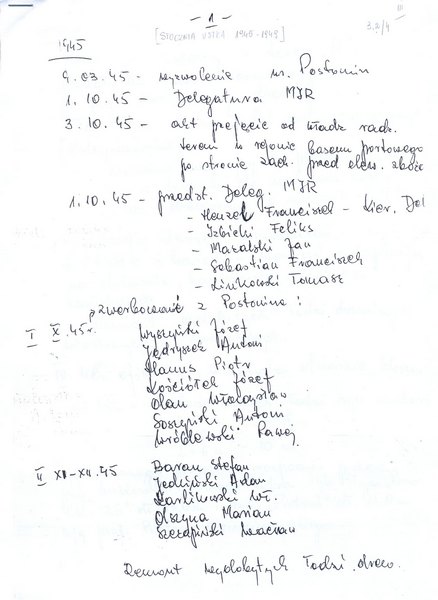 - 1 -
[STOCZNIA USTKA 1945-1949]
1945
9.03.45 - wyzwolenie m. Postomin
1.10.45 - Delegatura MIR
3.10.45 - akt przejęcie od władz radz.
teren w rejonie basenu portowego
po stronie zach. przed elew. zboż
1.10.45 - przedst. Deleg. MIR
- Henzel Franciszek - kier. Del
- Izbicki Feliks
- Maralski Jan
- Sebastian Franciszek
- Linkowski Tomasz
zwerbowani z Postomina:
I X.45r. Wyszyński Józef
Jędryszek Antoni
Hanus Piotr
Kościółek Józef
Olan Władysław
Soszyński Antoni
Wróblewski Paweł
II XI-XII.45 Baran Stefan
Jedliński Adam
Karlikowski Wł.
Olszyna Marian
Szczepiński Wacław
Remont wydobytych łodzi drew.